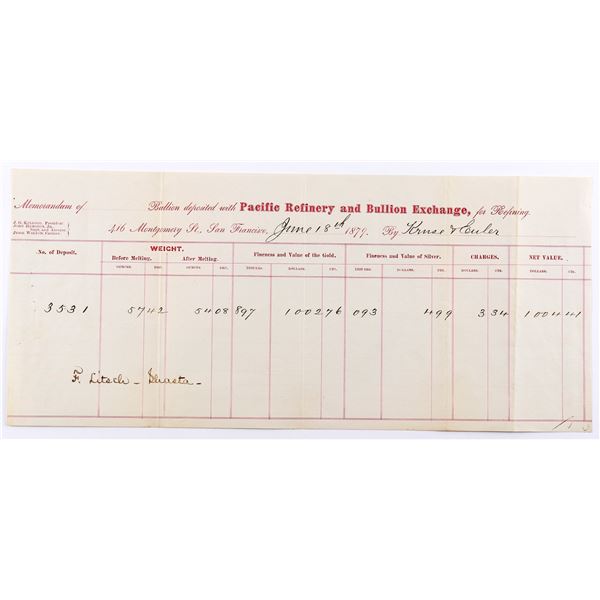 Memorandum of Bullion deposited with Pacific Refinery and Bullion Exchange, for Refining.
416 Montgomery St., San Francisco, June 18th 1879. By Kruse & Euler
No. of Deposit. WEIGHT. Fineness and Value of the Gold. Fineness and Value of Silver. CHARGES. NET VALUE.
Before Melting. After Melting.
OUNCES. DEC. OUNCES. DEC. THOUS'DS. DOLLARS. CTS. THOUS'DS. DOLLARS. CTS. DOLLARS. CTS. DOLLARS. CTS.
3531 57 42 54 08 897 1002 76 093 4 99 3 34 1004 41
F. Litsch - Shasta -